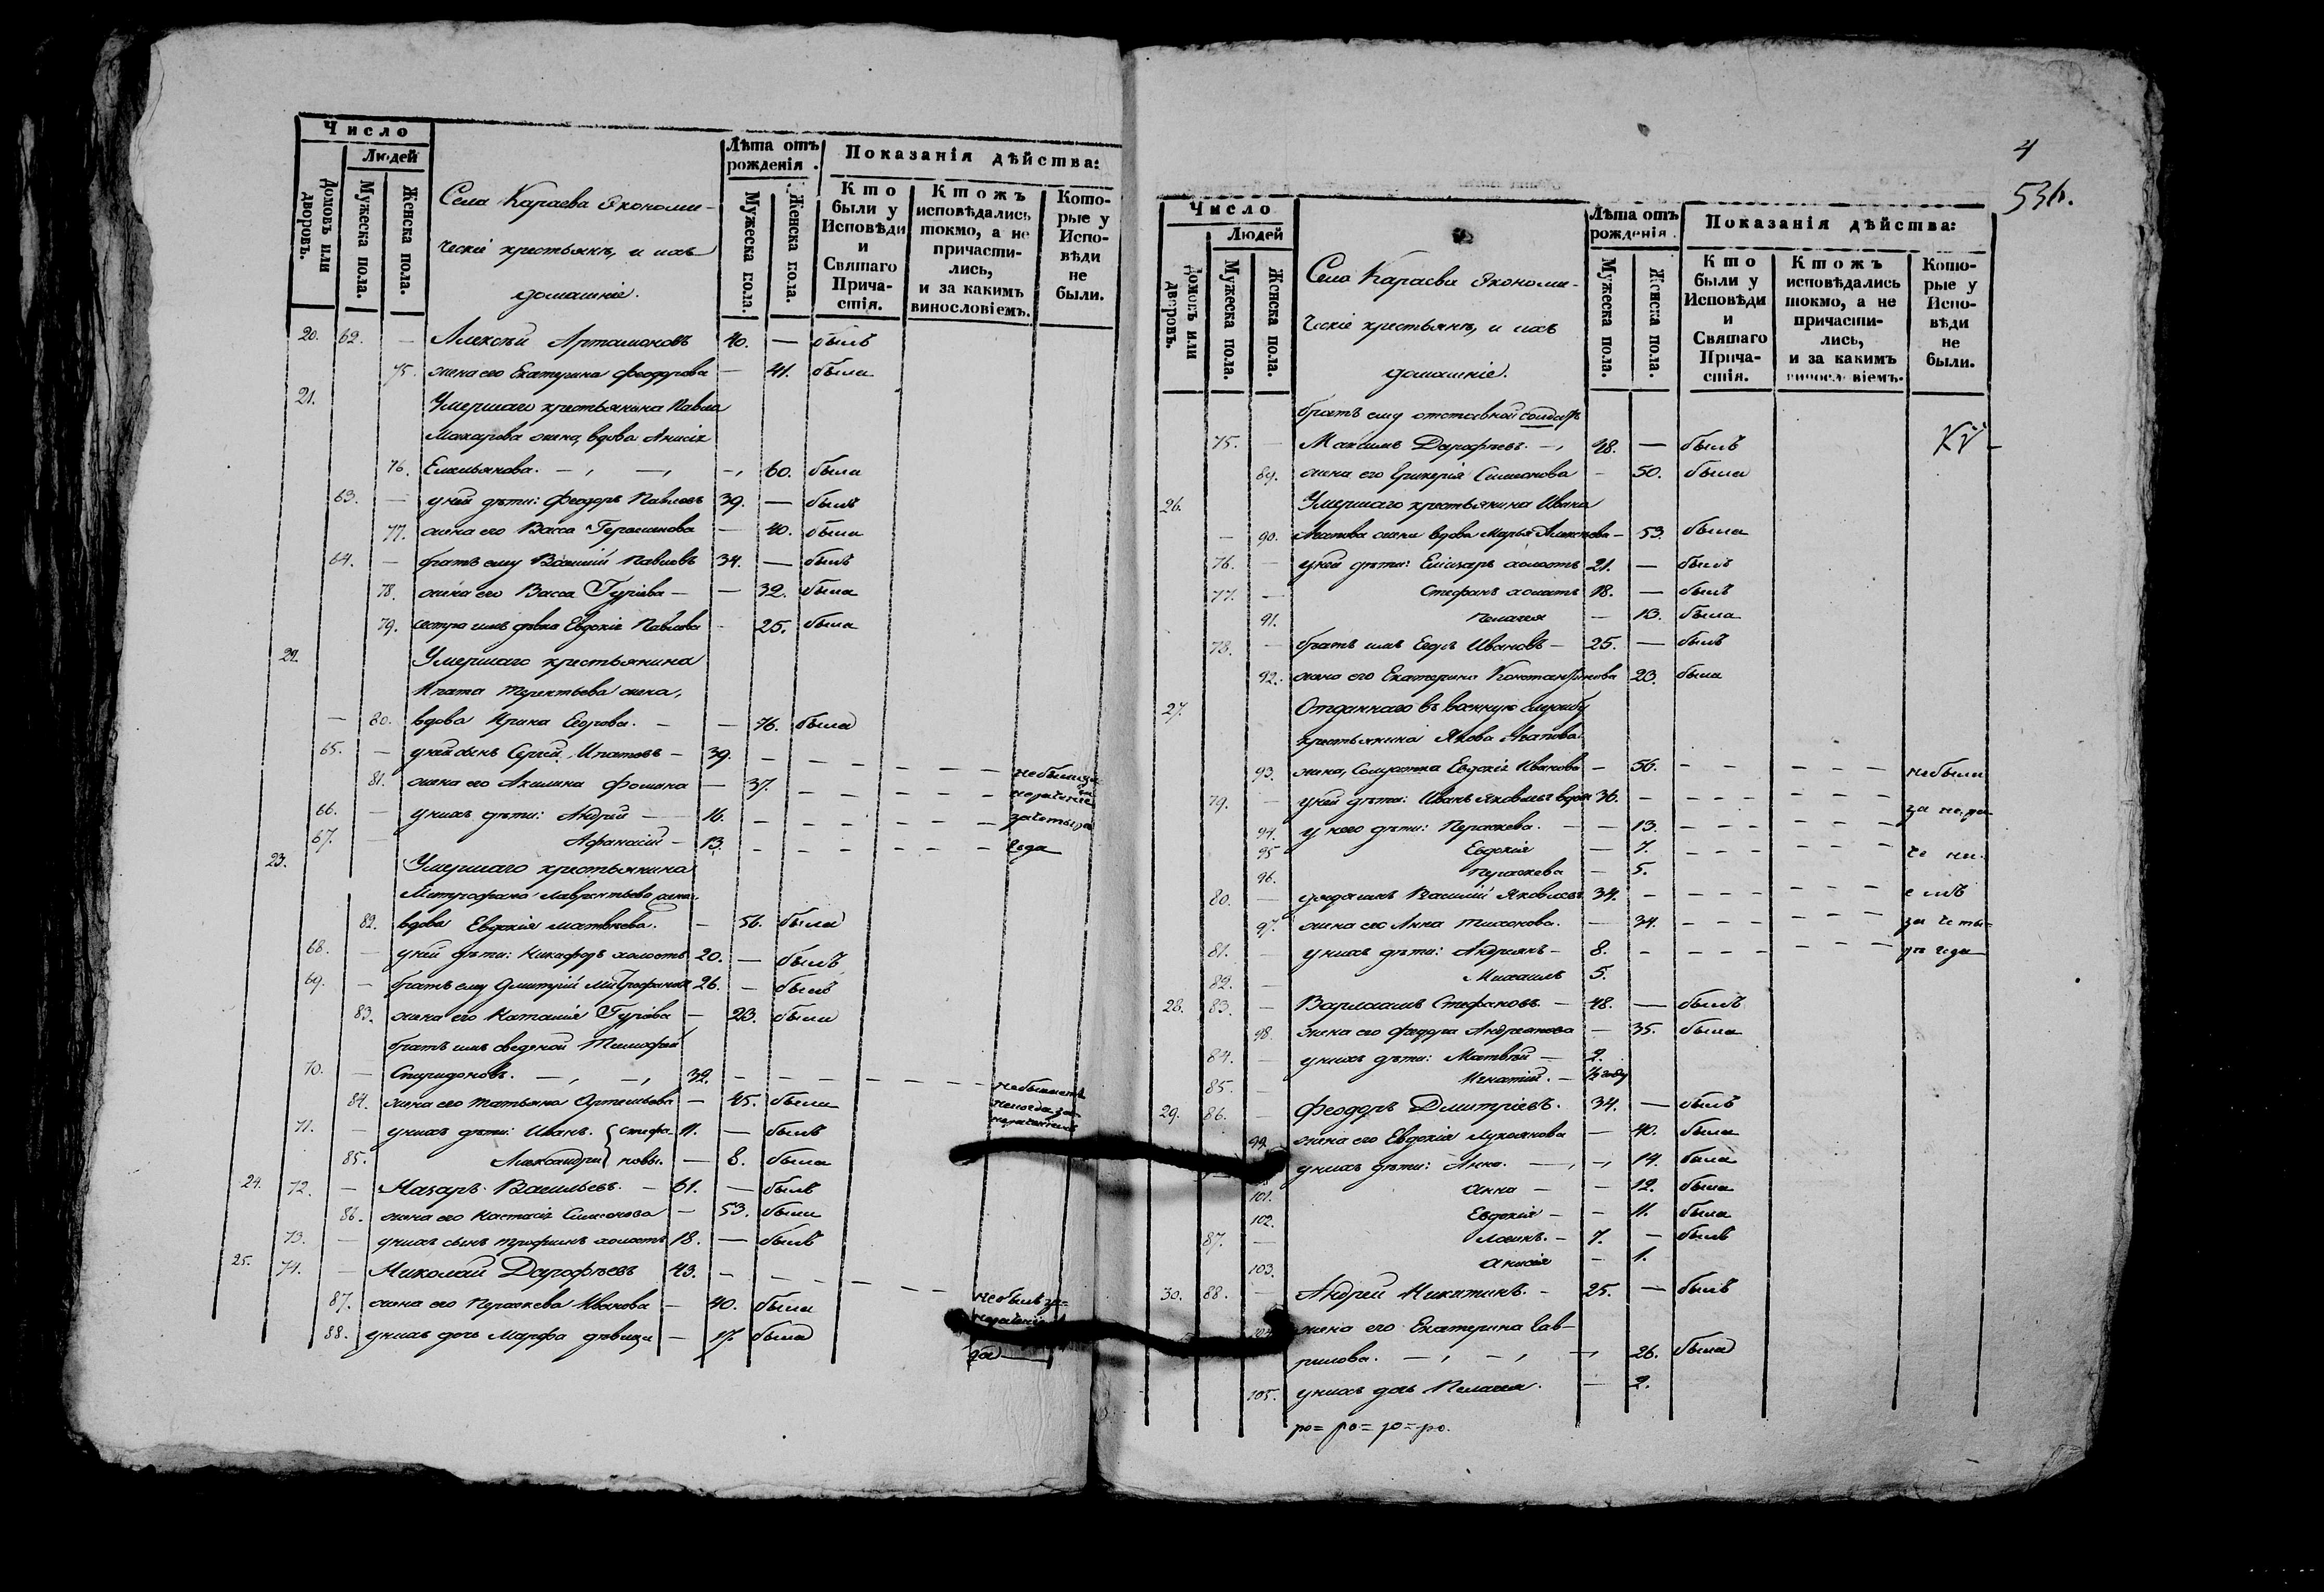 Число
Людей
Домовъ или дворовъ.
Мужеска пола.
Женска пола.
Села Караева Экономи-
ческіе крестьянѣ, и ихъ
домашніе.
Лѣта отъ рожденія.
Мужеска пола.
Женска пола.
Показанія дѣйства:
Кто были у Исповѣди и Святаго Прича-стія.
Ктожъ исповѣдались токмо, а не причасти-лись, и за какимъ винословіемъ.
Кото-рые у Испо-вѣди не были.
20. 62. — Алексѣй Артамоновъ 40. — былъ
75. жена его Екатерина Феодорова — 41. была
21. Умершаго крестьянина Павла
Макарова жена, вдова Анисія
76. Емельянова. — 60. была
63. — у ней дѣти: Феодоръ Павловъ 39. — былъ
77. жена его Васса Герасимова — 40. была
64. — братъ ему Василій Павловъ 34. — былъ
78. жена его Васса Гуріева — 32. была
79. сестра имъ дѣвка Евдокія Павлова — 25. была
22. Умершаго крестьянина
Ипата Терентьева жена,
— 80. вдова Ирина Егорова. — 76. была
65. — у ней сынъ Сергѣй Ипатовъ — 39. — — — — — небыли за
81. жена его Акилина Фомина — 37. — — — — —
66. — у нихъ дѣти: Андрей — 16. — — — — — за четыре
67. — Афанасій — 13. — — — — — года
23. Умершаго крестьянина
Митрофана Лаврентьева жена,
82. вдова Евдокія Матвѣева. — 56. была
68. — у ней дѣти: Никифоръ холостъ 20. — былъ
69. — братъ ему Дмитрій Митрофановъ 26. — былъ
83. жена его Наталія Гуріева — 23. была
братъ имъ сведеной Тимофей
70. — Спиридоновъ. — 32. — — — — —
84. жена его Татьяна Артемьева — 45. была
71. — у нихъ дѣти: Иванъ. Стефа- 11. — былъ
85. Александра новы. — 8. была
24. 72. — Назаръ Васильевъ. — 61. — былъ
86. жена его Настасія Симеонова — 53. была
73. — у нихъ сынъ Трофимъ холостъ 18. — былъ
25. 74. — Николай Дарофѣевъ 43. — — — — — небылъ за
87. жена его Параскева Иванова — 40. была
88. у нихъ дочь Марфа дѣвица — 17. была
4
536.
Число
Людей
Домовъ или дворовъ.
Мужеска пола.
Женска пола.
Села Караева Экономи-
ческіе крестьянѣ, и ихъ
домашніе.
Лѣта отъ рожденія.
Мужеска пола.
Женска пола.
Показанія дѣйства:
Кто были у Исповѣди и Святаго Прича-стія.
Ктожъ исповѣдались токмо, а не причасти-лись, и за какимъ винословіемъ.
Кото-рые у Испо-вѣди не были.
братъ ему отставной солдатъ
75. — Максимъ Дарофѣевъ. — 48. — былъ
89. жена его Гликерія Симеонова — 50. была
26. Умершаго крестьянина Ивана
— 90. Агапова жена вдова Марья Алексѣева — 53. была
76. — у ней дѣти: Елизаръ холостъ 21. — былъ
77. — Стефанъ холостъ 18. — былъ
91. Пелагея — 13. была
78. — братъ имъ Егоръ Ивановъ — 25. — былъ
92. жена его Екатерина Константинова 23. была
27. Отданнаго въ военную службу
крестьянина Якова Агапова
93. жена, солдатка Евдокія Иванова — 56. — — — — — небыли
79. — у ней дѣти: Иванъ Яковлевъ вдовъ 36. — — — — — за нера-
94. у него дѣти: Параскева. — 13. — — — — —
95 Евдокія — 7. — — — — — че ні-
96. Параскева — 5.
80. — Василій Яковлевъ 34. — — — — — емъ
97. жена его Анна Тихонова. — 34. — — — — — за четы-
81. — у нихъ дѣти: Андриянъ — 8. — — — — — ре года
82. — Михаилъ 5.
28. 83. — Варлаамъ Стефановъ. — 48. — былъ
98. жена его Феодора Андреянова — 35. была
84. — у нихъ дѣти: Матвѣй — 2.
85. — Игнатій. — ½ году
29. 86. — Феодоръ Дмитріевъ. 34. — былъ
99. жена его Евдокія Лукоянова — 40. была
у нихъ дѣти: Анна. — 14. была
101. Анна — 12. была
102. Евдокія — 11. была
87. — Логинъ. — 7. — былъ
103. Анисія — 1.
30. 88. — Андрей Никитинъ. — 25. — былъ
жена его Екатерина Гав-
рилова. — 26. была
105. у нихъ дочь Пелагея. — 2.